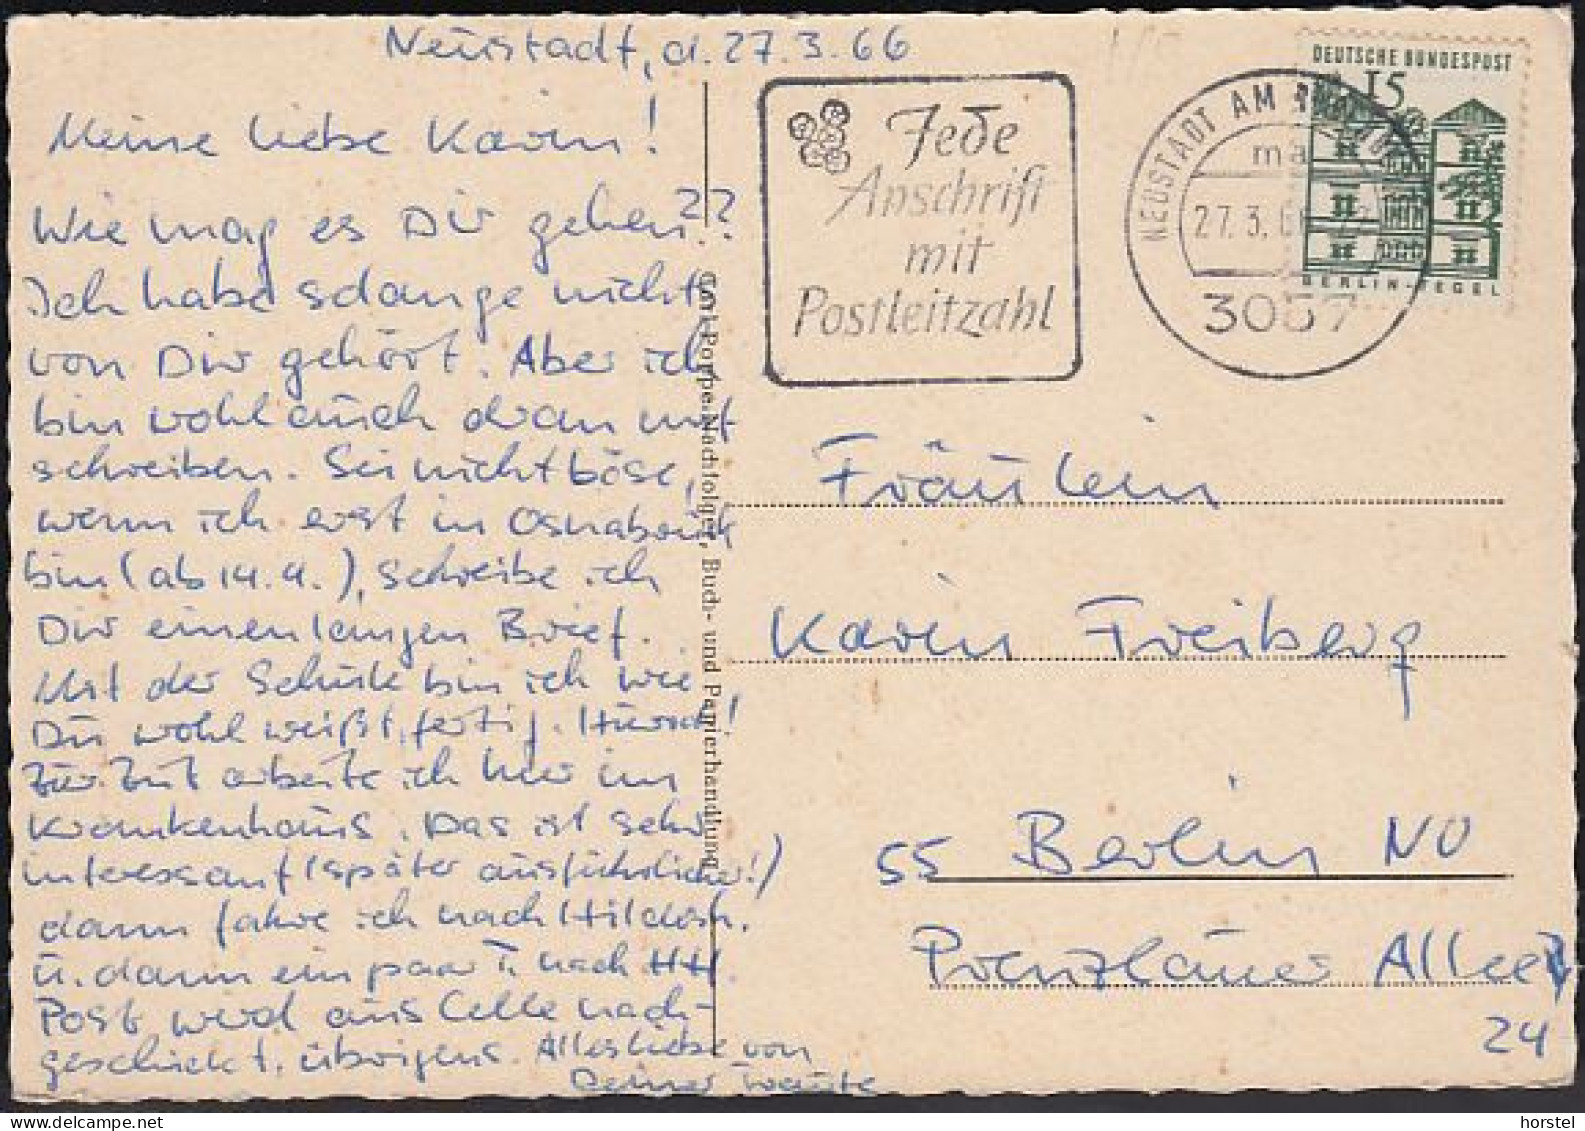 Neustadt, d. 27.3.66
Meine liebe Karin!
Wie mag es Dir gehen??
Ich habe solange nichts
von Dir gehört. Aber ich
bin wohl auch dran mit
schreiben. Sei nicht böse,
wenn ich erst in Osnabrück
bin (ab 14.4.), schreibe ich
Dir einen langen Brief.
Mit der Schule bin ich wie
Du wohl weißt, fertig. Hurra!
Zur Zeit arbeite ich hier im
Krankenhaus. Das ist sehr
interessant (später ausführlicher!)
dann fahre ich nach Hildesh.
u. dann ein paar T. nach HH.
Post wird aus Celle nach-
geschickt, übrigens. Alles liebe von
Deiner Traute
Carl Poppe Nachfolger, Buch- und Papierhandlung
Jede
Anschrift
mit
Postleitzahl
NEUSTADT AM
ma
27.3.6
3057
DEUTSCHE BUNDESPOST
15
BERLIN-TEGEL
Fräulein
Karin Freiberg
55 Berlin NO
Prenzlauer Allee
24
horstel